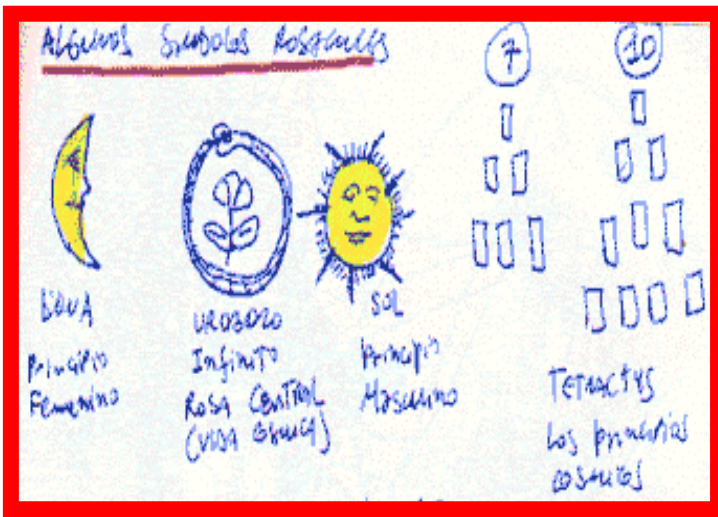 ALGUNOS SIMBOLOS
7
10
LUNA
Principio
Femenino
UROBORO
Infinito
ROSA CENTRAL
(VIDA
SOL
Principio
Masculino
TETRACTYS
Los principios
COSMICOS